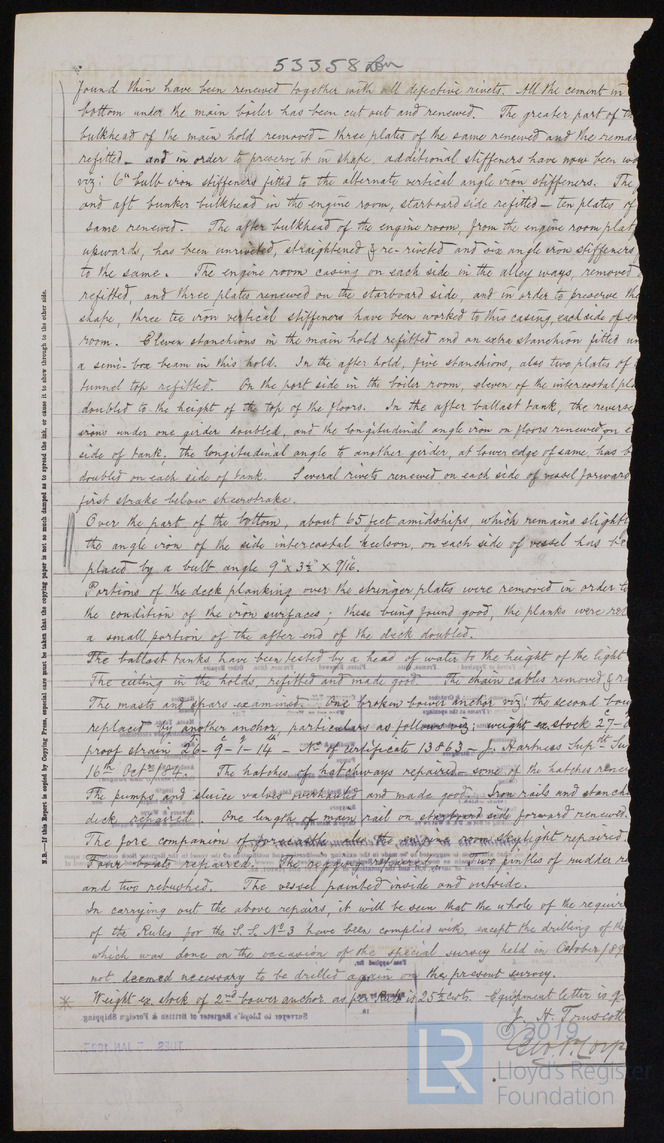 53358 Lon
found thin have been renewed together with all defective rivets. All the cement in
bottom under the main boiler has been cut out and renewed. The greater part of th
bulkhead of the main hold removed – three plates of the same renewed and the remai
refitted – and in order to preserve it in shape, additional stiffeners have now been wo
viz: 6" bulb iron stiffeners fitted to the alternate vertical angle iron stiffeners. The
and aft bunker bulkhead in the engine room, starboard side refitted – ten plates of
same renewed. The after bulkhead of the engine room, from the engine room plat
upwards, has been unriveted, straightened & re-riveted and six angle iron stiffeners
to the same. The engine room casing on each side in the alley ways, removed
refitted, and three plates renewed on the starboard side, and in order to preserve the
shape, three tee iron vertical stiffeners have been worked to this casing, each side of en
room. Eleven stanchions in the main hold refitted and an extra stanchion fitted un
a semi-box beam in this hold. In the after hold, five stanchions, also two plates of
tunnel top refitted. On the port side in the boiler room, eleven of the intercostal pla
doubled to the height of the top of the floors. In the after ballast tank, the reverse
irons under one girder doubled, and the longitudinal angle iron on floors renewed, on e
side of tank; the longitudinal angle to another girder, at lower edge of same, has b
doubled on each side of tank. Several rivets renewed on each side of vessel forward
first strake below sheerstrake.
Over the part of the bottom, about 65 feet amidships, which remains slightl
the angle iron of the side intercostal keelson, on each side of vessel has be
placed by a bulb angle 9" x 3½" x 9/16.
Portions of the deck planking over the stringer plates were removed in order to
the condition of the iron surfaces; these being found good, the planks were rel
a small portion of the after end of the deck doubled.
The ballast tanks have been tested by a head of water to the height of the light
The ceiling in the holds refitted and made good. The chain cables removed & ra
The masts and spars examined. One broken bower anchor viz: the second bow
replaced by another anchor, particulars as follows viz: weight ex. stock 27-0
proof strain 26-9-1-14 – No. of certificate 13863 – J. Hartness Supdt Su
16th Octr 184. The hatches & hatchways repaired – some of the hatches rene
The pumps and sluice valves overhauled and made good. Iron rails and stanch
deck repaired. One length of main rail on starboard side forward renewed.
The fore companion of forecastle, also the engine room skylight repaired.
Four boats repaired. The rigging repaired. Two pintles of rudder re
and two rebushed. The vessel painted inside and outside.
In carrying out the above repairs, it will be seen that the whole of the require
of the Rules for the S.S. No 3 have been complied with, except the drilling of the
which was done on the occasion of the special survey held in October/89
not deemed necessary to be drilled again on the present survey.
* Weight ex. stock of 2nd bower anchor as per Rule is 25½ cwts. Equipment letter is q.
J. H. Truscott
N.B.—If this Report is copied by Copying Press, especial care must be taken that the copying paper is not so much damped as to spread the ink, or cause it to show through to the other side.
Surveyor to Lloyd's Register of British & Foreign Shipping
© 2019
LR
Lloyd's Register
Foundation